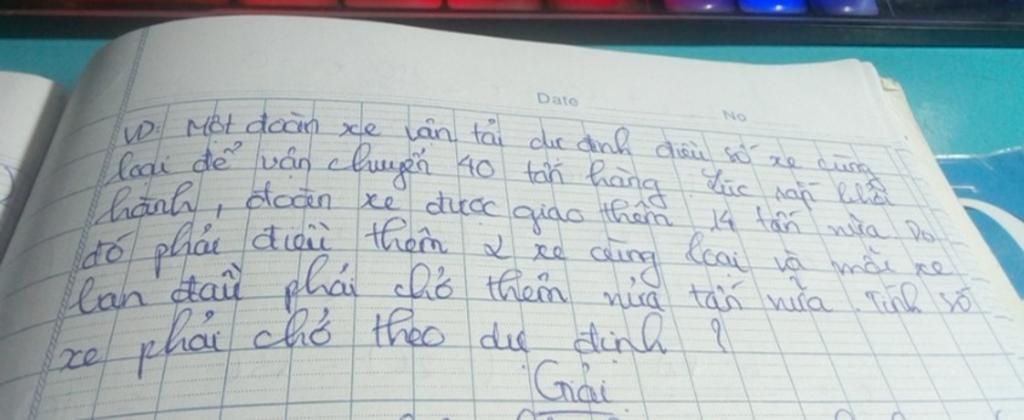 Date
No
VD: Một đoàn xe vận tải dự định điều số xe cùng
loại để vận chuyển 40 tấn hàng. Lúc sắp khởi
hành, đoàn xe được giao thêm 14 tấn nữa. Do
đó phải điều thêm 2 xe cùng loại và mỗi xe
ban đầu phải chở thêm nửa tấn nữa. Tính số
xe phải chở theo dự định ?
Giải